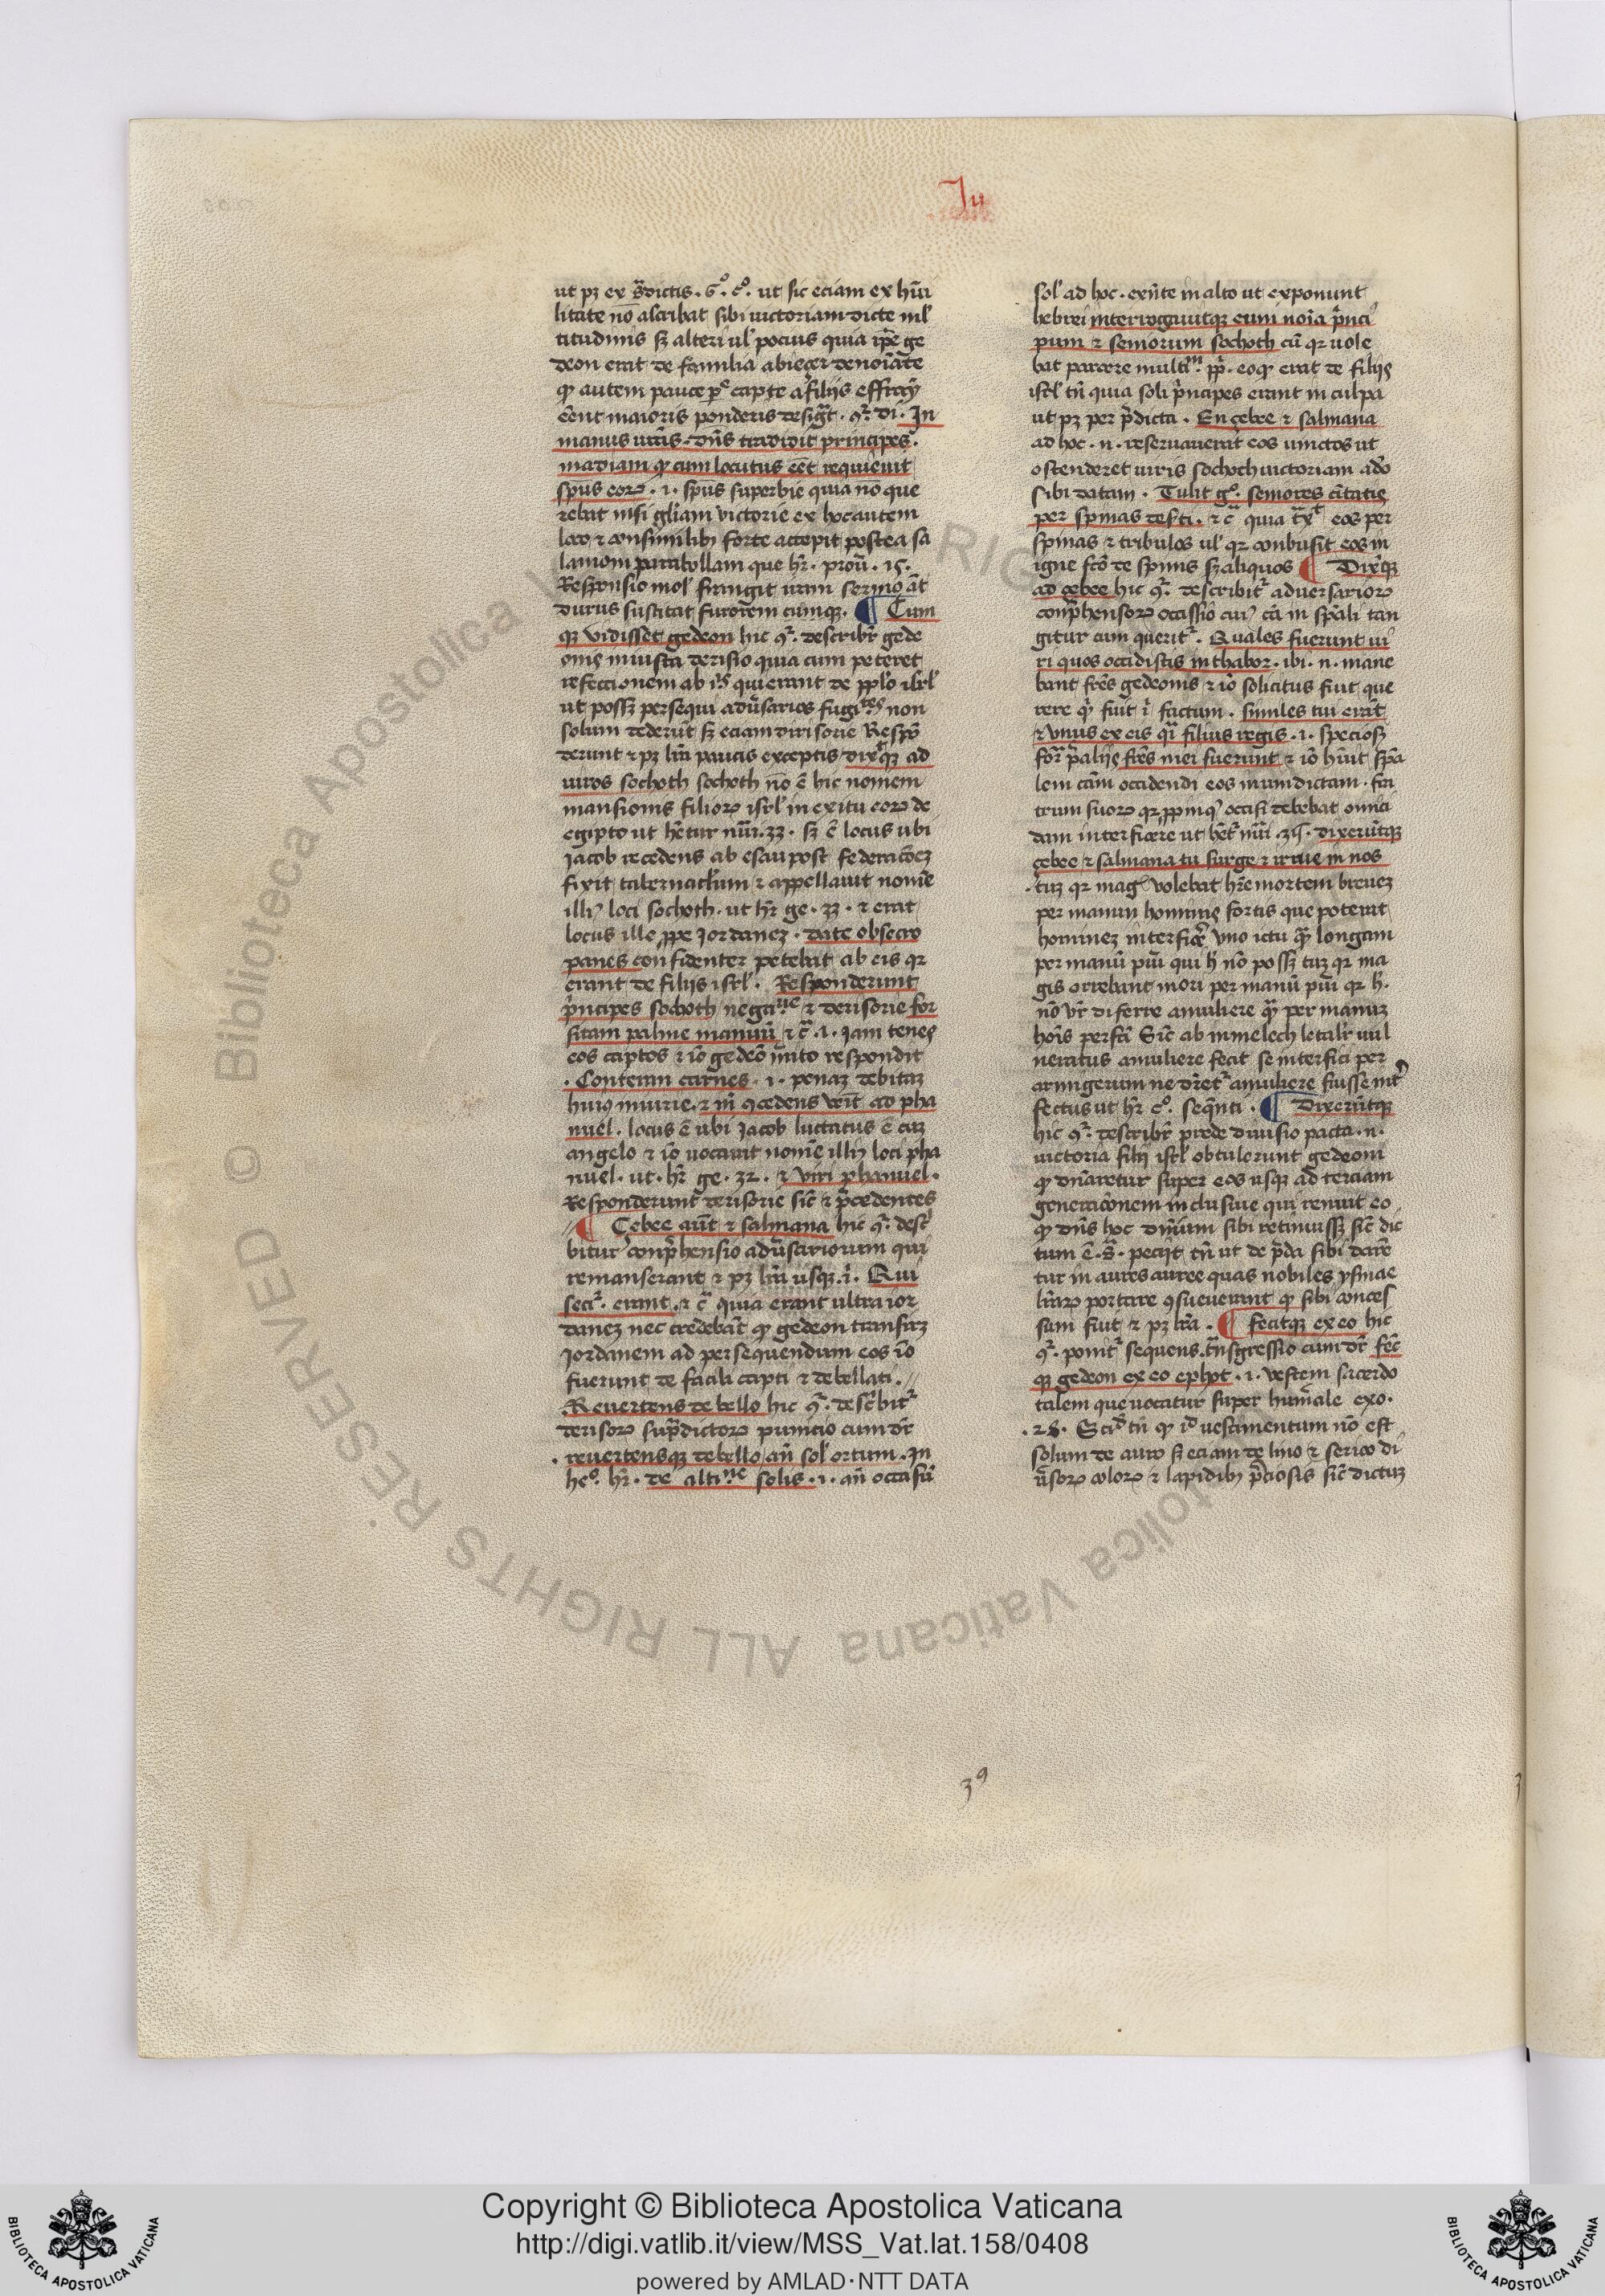 Iu
ut pꝫ ex s̄dictis · 6° · c° · ut sic eciam ex hūi
litate nō ascribat sibi uictoriam dicte ml̓
titudinis sꝫ alteri ul̓ pocius quia ip̄e ge
deon erat de familia abieçer denoīate
ꝙ autem pauce capte a filijs effraȳ
eēnt maioris ponderis desig̅t · ꝯ · di · In
manus ur̄as · dn̄s tradidit principes ·
madiam ꝙ cum locutus eēt requieuit
sp̄us eorꝝ · i · sp̄us superbie quia nō que
rebat nisi gl̄iam victorie ex hoc autem
loco ⁊ consimilibꝫ forte accepit postea sa
lamom parabollam que hr̄ · prou̅ · 15 ·
Responsio mol̓ frangit iram sermo āt
durus suscitat furorem cumqꝫ · ¶ Cum
qꝫ vidisset gedeon hic ꝯ · describr̄ gede
onis iniusta derisio quia cum peteret
refeccionem ab i̅s qui erant de pplo isrl̓
ut possꝫ persequi adu̅sarios fugi.tes non
solum dederūt sꝫ eciam dirisorie Respō
derunt ⁊ pꝫ lr̄a paucis exceptis dixͭqꝫ ad
uiros sochoth sochoth nō ē hic nomem
mansionis filiorꝝ isrl̓ in exitu eorꝝ de
egipto ut hr̄etur nūi · 33 · sꝫ ē locus ubi
Jacob recedens ab esau post federacōeꝫ
fixit tabernaclum ⁊ appellauit nomē
illiꝰ loci sochoth · ut hr̄ ge · 33 · ⁊ erat
locus ille ꝓpe Jordaneꝫ · date obsecro
panes confidenter petebat ab eis qr
erant de filijs isrl̓ · Responderunt
pͥncipes sochoth nega.ue ⁊ derisorie for
sitam palme manuū ⁊ c̄ · i · Jam tenes
eos captos ⁊ iō gedeō m̄ito respondit
· Conteram carnes · i · penaꝫ debitaꝫ
huiꝰ iniurie · ⁊ in̄ ꝯcedens vēit ad pha
nuel · locus ē ubi Jacob luctatus ē cuꝫ
angelo ⁊ io uocauit nomē illiꝰ loci pha
nuel · ut · hr̄ ge · 32 · ⁊ viri phanuel ·
Responderunt derisorie sic̄ ⁊ p̄cedentes
¶ Çebee aūt ⁊ salmana hic ꝯ · descͥ
bitur conp̄hensio adu̅sariorum qui
remanserant ⁊ pꝫ lr̄a usqꝫ · i · Qui
seci · erant · ⁊ c̄ quia erant ultra ior
daneꝫ nec credebāt ꝙ gedeon transirꝫ
Jordanem ad persequendum eos iō
fuerunt de facili capti ⁊ debellati · //
Reuertens de bello hic ꝯ · descͥbitᷣ
derisorꝝ sup̄dictorꝝ punicio cum dr̄
· reuertensqꝫ de bello an̄ sol̓ ortum · In
he° · hr̄ · de alti.ne solis · i · an̄ occasū
sol̓ ad hoc · exn̄te in alto ut exponunt
hebrei interrogauitqꝫ eum noīa pͥnci
pum ⁊ seniorum sochoth cū qr uole
bat parcere multi.m ꝓꝑ · eoꝙ erat de filijs
isrl̓ tn̄ quia soli pͥncipes erant in culpa
ut pꝫ per p̄dicta · En çebee ⁊ salmana
ad hoc · n · reseruauerat eos uinctos ut
ostenderet uiris sochoth uictoriam a do
sibi datam · Tulit g° · seniores ciuitatis
per spinas deserti · ⁊ c̄ quia eos per
spinas ⁊ tribulos ul̓ qr conbusit eos in
igne fcō de spinis sꝫ aliquos ¶ Dixͭqꝫ
ad çebee hic ꝯ · describitᷣ aduersariorꝝ
conp̄hensorꝝ occissiō cuiꝰ cā in sp̄ali tan
gitur cum queritᷣ · Quales fuerunt ui
ri quos occidistis in thabor · ibi · n · mane
bant fr̄es gedeonis ⁊ iō solicitus fuit que
rere qͥ fuit ī factum · similes tui erāt
⁊ vnus ex eis qͣi filius regis · i · speciosꝫ
for̄ p̄alijs fr̄es mei fuerunt ⁊ iō hūit sp̄a
lem cām occidendi eos in uindictam · fra
trum suorꝝ qr ꝓpinqꝰ occisi debebat omici
dam interficere ut hr̄ nūi · 35 · dixerūtqꝫ
çebee ⁊ salmana tu surge ⁊ irrue in nos
· tuꝫ qr magꝭ volebat hr̄e mortem breueꝫ
per manun hominis fortis que poterat
homineꝫ interficͤ vno ictu qͣ longam
per manū pīu qui h̄ nō possꝫ tuꝫ qr ma
gis orrebant mori per manū pīu qr h̄ ·
nō vr̄ diferre amuliere qͣ per manuꝫ
hoīs perfcī Sic̄ ab inmelech letalr̄ uul
neratus amuliere fecit se interfici per
armigerum ne dr̄etᷣ amuliere fuisse intͤ
fectus ut hr̄ c° · seqn̄ti · ¶ Dixerūtqꝫ
hic ꝯ · describr̄ prede diuisio pacta · n ·
uictoria filij isrl̓ obtulerunt gedeoni
ꝙ dn̄aretur super eos usqꝫ ad terciam
generacōnem inclusiue qui renuit eo
ꝙ dn̄s hoc dn̄ium sibi retinuissꝫ sic̄ dic
tum ē · s̄ · peciit tn̄ ut de p̄da sibi darē
tur in aures auree quas nobiles ysmae
litarꝝ portare ꝯsueuerunt ꝙ sibi conces
sum fuit ⁊ pꝫ lr̄a · ¶ fecitqꝫ ex eo hic
ꝯ · ponitᷣ sequens trn̄sgressio cum dr̄ fec̄
qꝫ gedeon ex eo ephot · i · vestem sacerdo
talem que uocatur super hum̄ale exo ·
· 28 · Scid̄ tn̄ ꝙ id̄ vestimentum nō est
solum de auro sꝫ eciam de lino ⁊ serico di
u̅sorꝝ colorꝝ ⁊ lapidibꝫ p̄ciosis sic̄ dictuꝫ
39
Copyright © Biblioteca Apostolica Vaticana
http://digi.vatlib.it/view/MSS_Vat.lat.158/0408
powered by AMLAD·NTT DATA